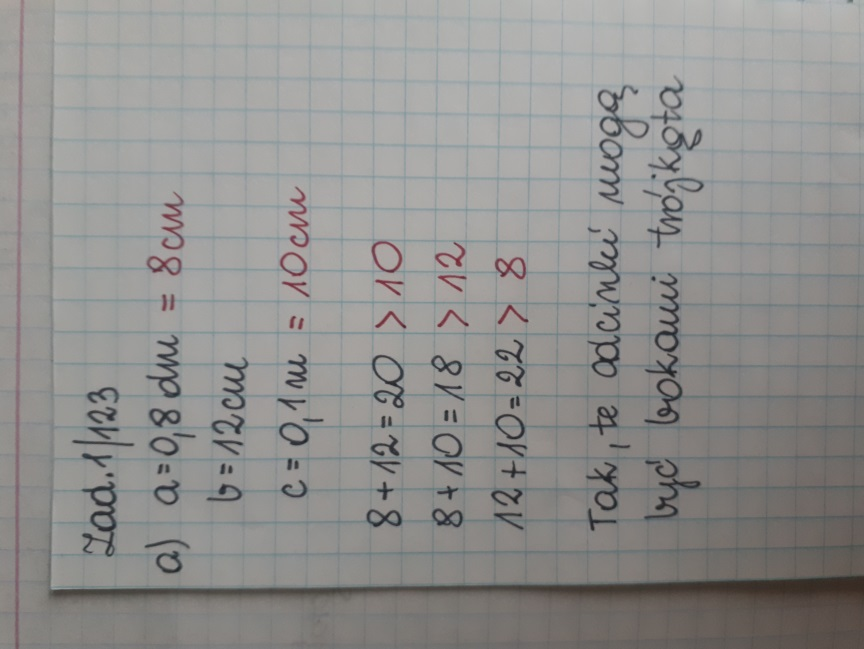 Zad. 1/123
a) a = 0,8 dm = 8cm
b = 12cm
c = 0,1m = 10cm
8 + 12 = 20 > 10
8 + 10 = 18 > 12
12 + 10 = 22 > 8
Tak, te odcinki mogą
być bokami trójkąta